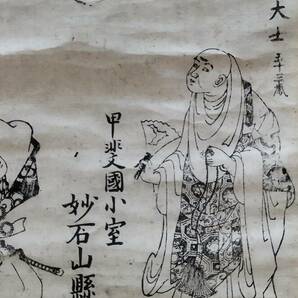 大士
甲斐國小室
妙石山縣